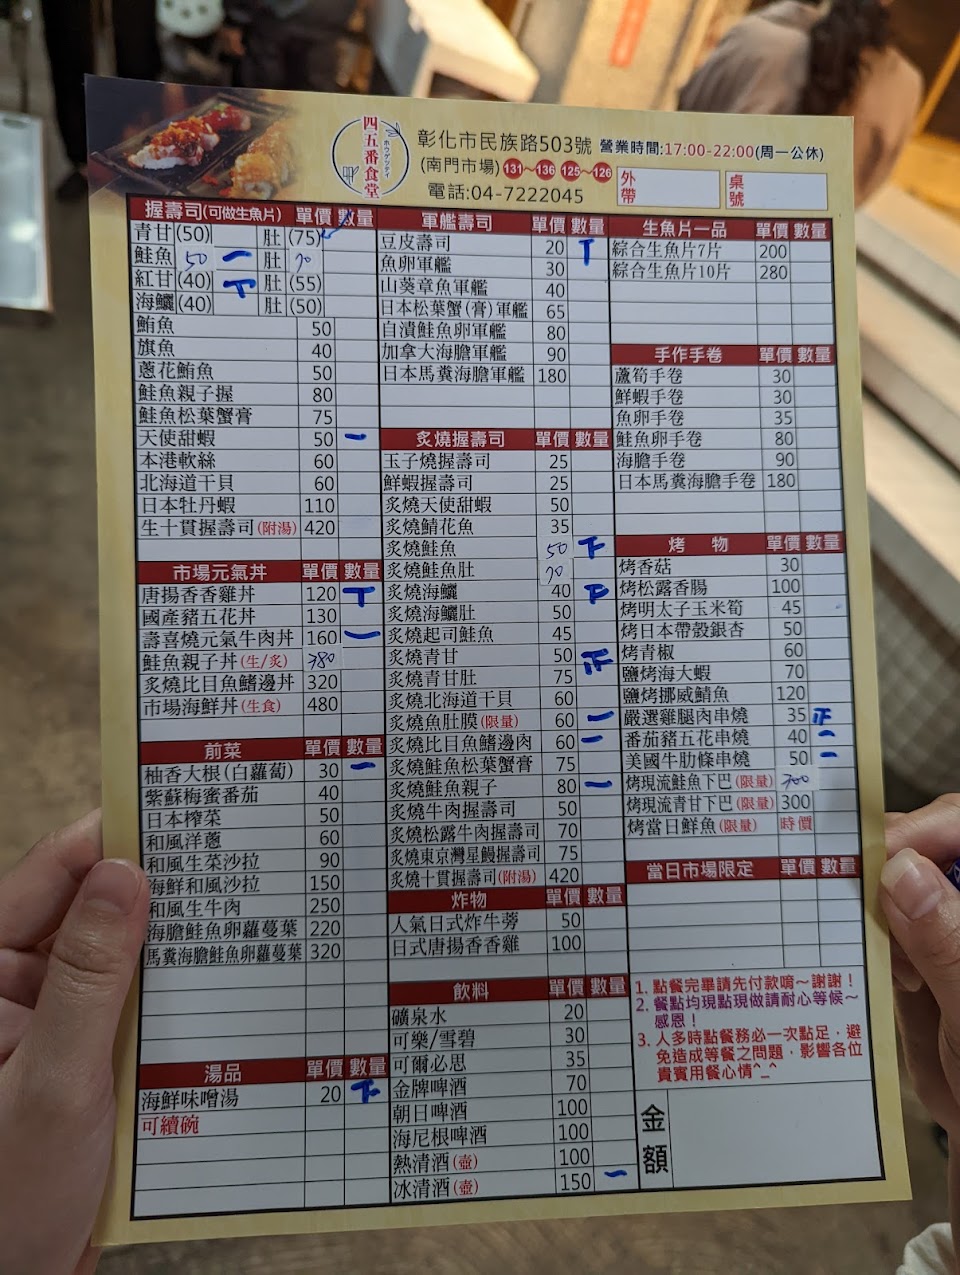 四五番食堂
ホウデリテイ
彰化市民族路503號 營業時間:17:00-22:00(周一公休)
(南門市場) 131~136 125~126
電話:04-7222045
外帶
桌號
握壽司(可做生魚片) 單價 數量
青甘(50) 肚(75)
鮭魚 50 一 肚 70
紅甘(40) 下 肚(55)
海鱺(40) 肚(50)
鮪魚 50
旗魚 40
蔥花鮪魚 50
鮭魚親子握 80
鮭魚松葉蟹膏 75
天使甜蝦 50 一
本港軟絲 60
北海道干貝 60
日本牡丹蝦 110
生十貫握壽司(附湯) 420
市場元氣丼 單價 數量
唐揚香香雞丼 120 丅
國產豬五花丼 130
壽喜燒元氣牛肉丼 160 一
鮭魚親子丼(生/炙) 380
炙燒比目魚鰭邊丼 320
市場海鮮丼(生食) 480
前菜 單價 數量
柚香大根(白蘿蔔) 30 一
紫蘇梅蜜番茄 40
日本榨菜 50
和風洋蔥 60
和風生菜沙拉 90
海鮮和風沙拉 150
和風生牛肉 250
海膽鮭魚卵蘿蔓葉 220
馬糞海膽鮭魚卵蘿蔓葉 320
湯品 單價 數量
海鮮味噌湯 20 下
可續碗
軍艦壽司 單價 數量
豆皮壽司 20 丅
魚卵軍艦 30
山葵章魚軍艦 40
日本松葉蟹(膏)軍艦 65
自漬鮭魚卵軍艦 80
加拿大海膽軍艦 90
日本馬糞海膽軍艦 180
炙燒握壽司 單價 數量
玉子燒握壽司 25
鮮蝦握壽司 25
炙燒天使甜蝦 50
炙燒鯖花魚 35
炙燒鮭魚 50 下
炙燒鮭魚肚 70
炙燒海鱺 40 下
炙燒海鱺肚 50
炙燒起司鮭魚 45
炙燒青甘 50 正
炙燒青甘肚 75
炙燒北海道干貝 60
炙燒魚肚膜(限量) 60 一
炙燒比目魚鰭邊肉 60 一
炙燒鮭魚松葉蟹膏 75
炙燒鮭魚親子 80 一
炙燒牛肉握壽司 50
炙燒松露牛肉握壽司 70
炙燒東京灣星鰻握壽司 75
炙燒十貫握壽司(附湯) 420
炸物 單價 數量
人氣日式炸牛蒡 50
日式唐揚香香雞 100
飲料 單價 數量
礦泉水 20
可樂/雪碧 30
可爾必思 35
金牌啤酒 70
朝日啤酒 100
海尼根啤酒 100
熱清酒(壺) 100
冰清酒(壺) 150 一
生魚片一品 單價 數量
綜合生魚片7片 200
綜合生魚片10片 280
手作手卷 單價 數量
蘆筍手卷 30
鮮蝦手卷 30
魚卵手卷 35
鮭魚卵手卷 80
海膽手卷 90
日本馬糞海膽手卷 180
烤 物 單價 數量
烤香菇 30
烤松露香腸 100
烤明太子玉米筍 45
烤日本帶殼銀杏 50
烤青椒 60
鹽烤海大蝦 70
鹽烤挪威鯖魚 120
嚴選雞腿肉串燒 35 正
番茄豬五花串燒 40 一
美國牛肋條串燒 50 一
烤現流鮭魚下巴(限量) 300
烤現流青甘下巴(限量) 300
烤當日鮮魚(限量) 時價
當日市場限定 單價 數量
1. 點餐完畢請先付款唷~謝謝!
2. 餐點均現點現做請耐心等候~
感恩!
3. 人多時點餐務必一次點足,避
免造成等餐之問題,影響各位
貴賓用餐心情^_^
金額